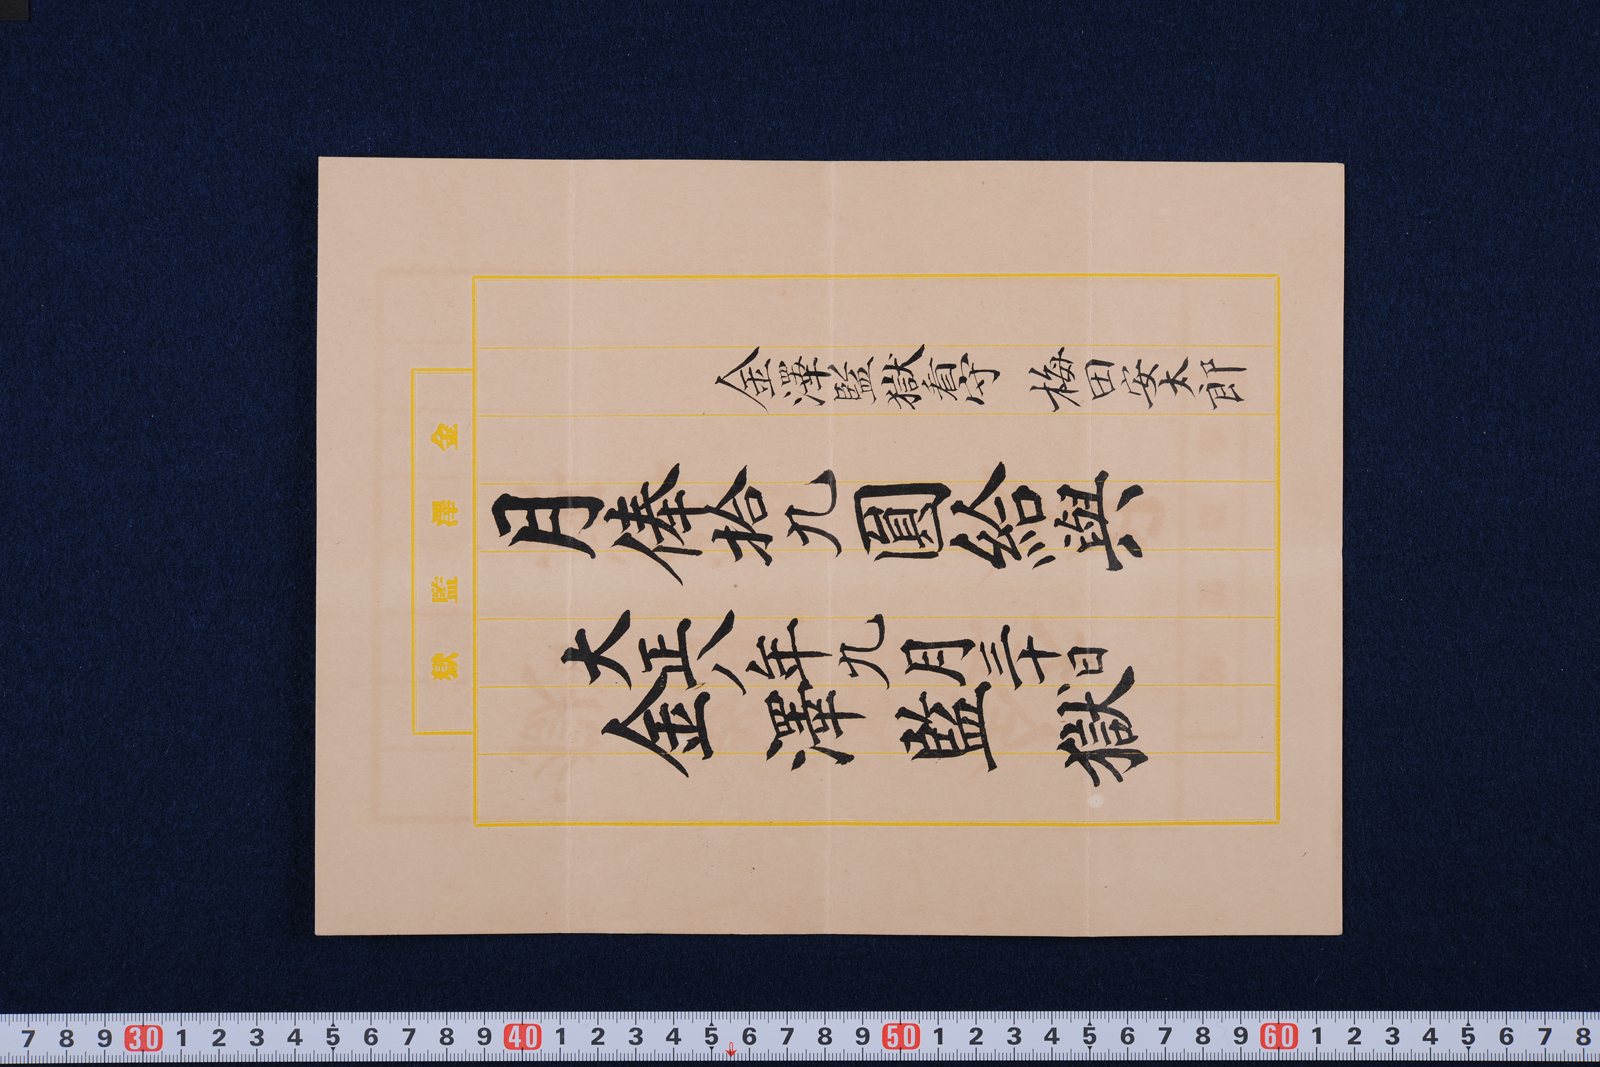 金澤監獄看守 梅田安太郎
月俸拾九圓給與
大正八年九月三十日
金澤監獄
金澤監獄
7 8 9 30 1 2 3 4 5 6 7 8 9 40 1 2 3 4 5 6 7 8 9 50 1 2 3 4 5 6 7 8 9 60 1 2 3 4 5 6 7 8